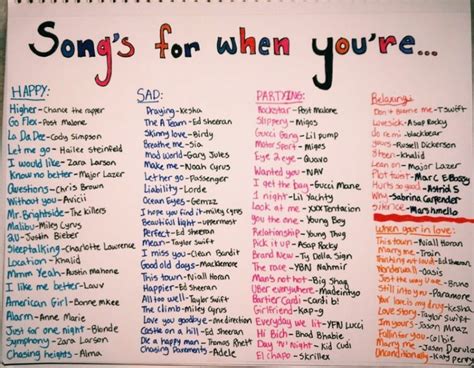 Song's for when you're...
HAPPY:
Higher-Chance the rapper
Go Flex-Post Malone
La Da Dee-Cody Simpson
Let me go-Hailee Steinfeld
I would like-Zara Larson
Know no better-Major Lazer
Questions-Chris Brown
Without you-Avicii
Mr. Brightside-The killers
Malibu-Miley Cyrus
2U-Justin Bieber
Sleeptalking-Charlotte Lawrence
Location-Khalid
Mmm Yeah-Austin Mahone
I like me better-Lauv
American Girl-Bonnie Mkee
Alarm-Anne Marie
Just for one night-Blonde
Symphony-Zara Larson
Chasing heights-Alma
SAD:
Praying-Kesha
The A Team-Ed Sheeran
Skinny love-Birdy
Breathe me-Sia
Mad world-Gary Jules
Make me-Noah Cyrus
Let her go-Passenger
Liability-Lorde
Ocean Eyes-
I hope you find it-miley Cyrus
Beautiful light-uppermost
Perfect-Ed Sheeran
Mean-Taylor Swift
I miss you-Clean Bandit
Good old days-Macklemore
This town-Niall Horan
Happier-Ed Sheeran
All too well-Taylor Swift
The climb-miley Cyrus
Love you goodbye-One direction
Castle on a hill-Ed Sheeran
Die a happy man-Thomas Rhett
Chasing Pavements-Adele
PARTYING:
Rockstar-Post Malone
Slippery-Migos
Gucci Gang-Lil pump
Motor Sport-Migos
Eye 2 eye-Quavo
Wanted you-NAV
I get the bag-Gucci Mane
1 night-Lil Yachty
Look at me-XX Tentacion
you the one-Young Boy
Relationship-Young Thug
Pick it up-Asap Rocky
Brand New-Ty Dolla Sign
The race-YBN Nahmir
Man's not hot-Big Shaq
Uber everywhere-Madeintyo
Bartier Cardi-Cardi b!
Girlfriend-Kap-g
Everyday we lit-YFN Lucci
Day 'N' Night-Kid Cudi
El chapo-Skrillex
Relaxing:
Don't Blame me-TSwift
Lovesick-Asap Rocky
do re mi-blackbear
Yours-Russell Dickerson
8teen-Khalid
Lean on-Major Lazor
Plot twist-Marc E Bassy
Hurts so good-Astrid S
Why-Sabrina Carpender
Silence-Marshmello
When your in love:
This town-Niall Horan
Marry me-Train
Thinking out loud-Ed Sheeran
Wonderwall-Oasis
Just the way you are-Bruno
Still into you-Paramore
Your love is my drug-kesha
Love story-Taylor Swift
I'm yours-Jason Mraz
Fallin for you-Colbie
Marry me-Jason Derulo
Unconditionally-Katy perry